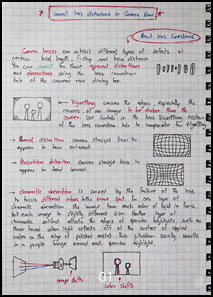 Correct lens distortions in Camera Raw
About Lens Corrections
Camera lenses can exhibit different types of defects at
certain focal length, f-stop and focus distance
We can correct for these apparent distortions
and aberrations using the lens correction
tab of the camera raw dialog box.
→ Vignetting causes the edges, especially the
corners, of an image to be darker than the
center. Use Controls in the Lens Vignetting section
of the Lens correction tab to compensate for vignetting
→ Barrel distortion causes straight lines to
appear to bow outward
→ Pincushion distortion causes straight lines to
appear to bend inward
→ Chromatic aberration is caused by the failure of the lens
to focus different colors to the same spot. In one type of
chromatic aberration, the image from each color of light is in focus,
but each image is slightly different size. Another type of
chromatic artifact affects the edges of specular highlights, such as
those found when light reflects off of the surface of
water or the edge of polished metal. This situation usually results
in a purple fringe around each specular highlight.
01
image shifts
color shifts